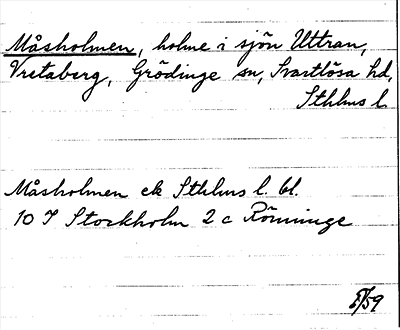 Måsholmen, holme i sjön Uttran,
Vretaberg, Grödinge sn, Svartlösa hd,
Sthlms l.
Måsholmen ek Sthlms l. bl.
10 I Stockholm 2 c Rönninge